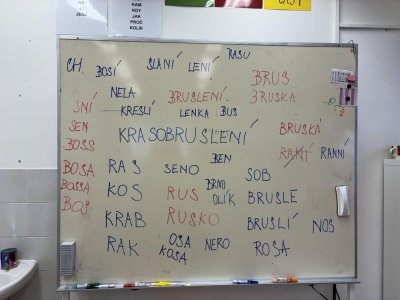 KAM
KDY
JAK
PROČ
KOLIK
CH
BOSÍ
SLANÍ
LENÍ
RASU
BRUS
NELA
BRUSLENÍ
BRUSKA
SNÍ
KRESLÍ
LENKA
BUS
SEN
KRASOBRUSLENÍ
BRUSKA
BOSS
RANÍ
RANNÍ
BEN
BOSA
RAS
SENO
SOB
BOSSA
BRNO
KOS
RUS
OLÍK
BRUSLE
BOS
KRAB
RUSKO
BRUSLÍ
NOS
RAK
OSA
NERO
ROSA
KOSA